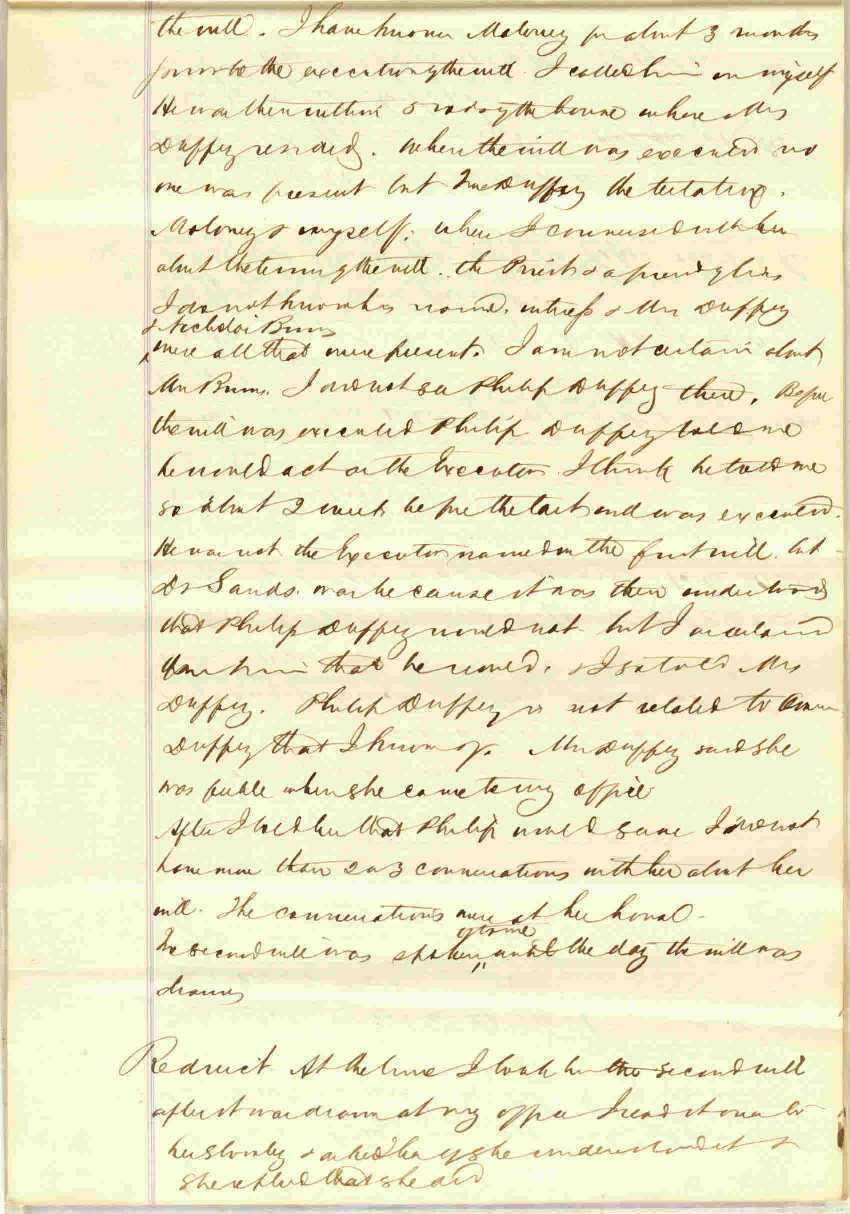 the will. I have known Maloney for about 3 months
previous to the execution of the will. I called him in myself
He was then within 5 rods of the house where Mrs
Duffey resided. When the will was executed no
one was present but Mrs Duffey the testatrix.
Maloney & myself; when I conversed with her
about the terms of the will. the Priest & a friend of his
I do not know his name, witness & Mrs Duffey
& Nicholas Burns
were all that were present. I am not certain about
Mr Burns. I did not see Philip Duffey there. Before
the will was executed Philip Duffey told me
he would act as the Executor. I think he told me
so about 2 weeks before the last will was executed.
He was not the Executor named in the first will but
Dr Sands. was because it was then understood
that Philip Duffey would not but I ascertained
from him that he would. & I so told Mrs
Duffey. Philip Duffey is not related to
Duffey that I know of. Mrs Duffey said she
was feeble when she came to my office
After I told her that Philip would serve I did not
have more than 2 or 3 conversations with her about her
will. The conversations were at her house.
of to me
No second will was spoken until the day the will was
drawn
Redirect At the time I took her the second will
after it was drawn at my office I read it over to
her slowly & asked her if she understood it &
she replied that she did